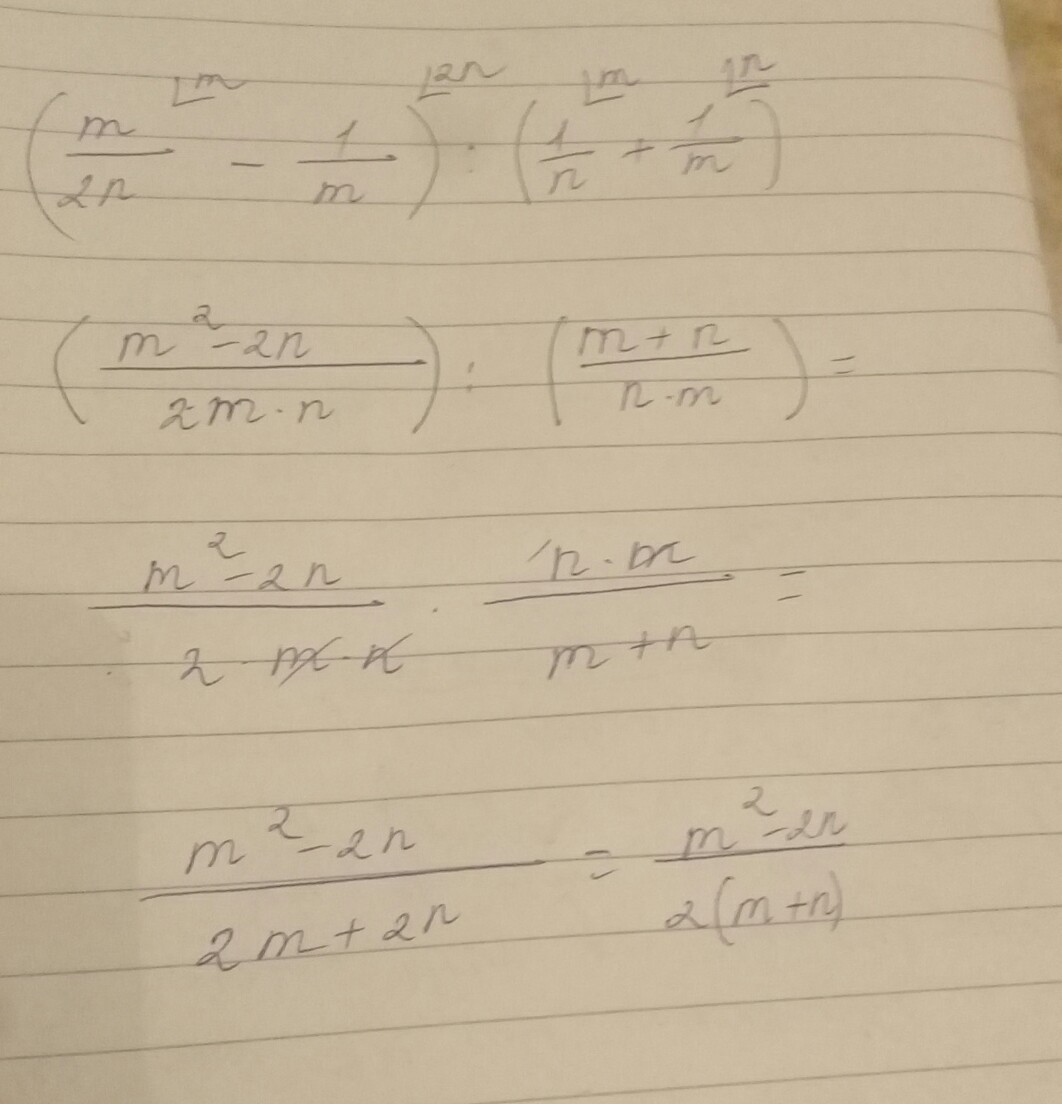 (m/2n ⌊m - 1/m ⌊2n) : (1/n ⌊m + 1/m ⌊n)
(m²-2n / 2m·n) : (m+n / n·m) =
m²-2n / 2·m·n · n·m / m+n =
m²-2n / 2m+2n = m²-2n / 2(m+n)